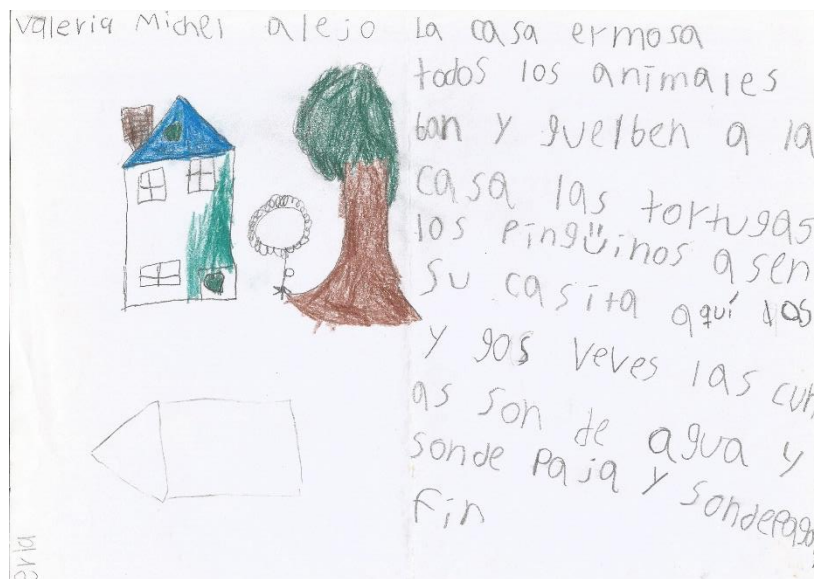 Valeria Michel alejo
La casa ermosa
todos los animales
ban y guelben a la
casa las tortugas
los pingüinos asen
su casita aquí los
y gos veves las cun
as son de agua y
sonde paja y sondepaga
fin
eria